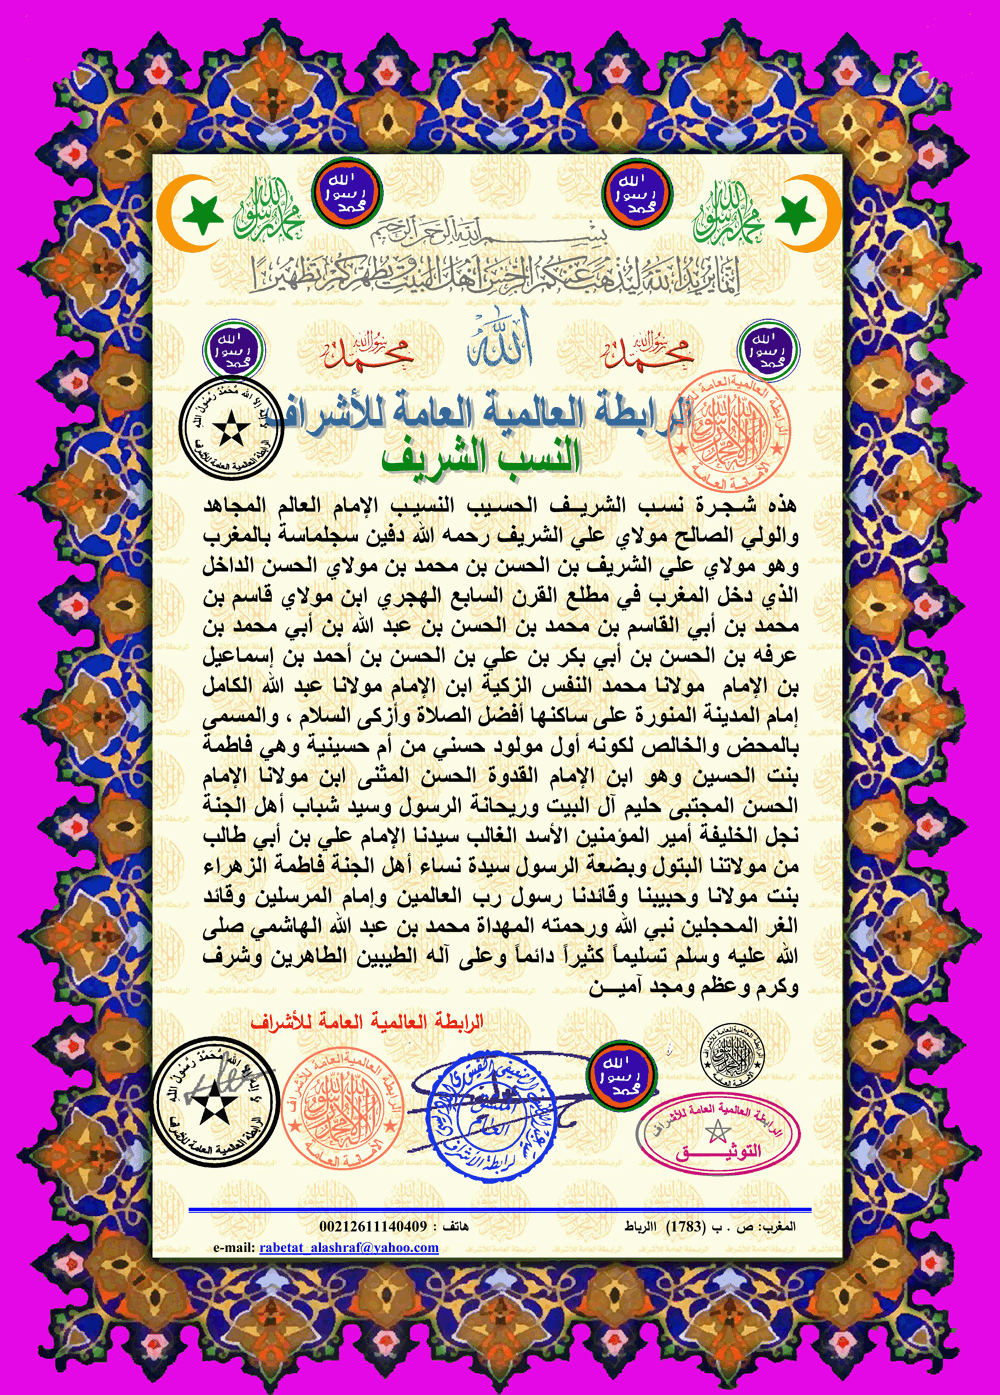 الله رسول محمد
الله رسول محمد
محمد رسول الله
محمد رسول الله
بسم الله الرحمن الرحيم
إنما يريد الله ليذهب عنكم الرجس أهل البيت ويطهركم تطهيرا
الله
محمد رسول الله
محمد رسول الله
الله رسول محمد
الله رسول محمد
الرابطة العالمية العامة للأشراف
النسب الشريف
هذه شـجـرة نسـب الشريــف الحسـيب النسيـب الإمام العالم المجاهد
والولي الصالح مولاي علي الشريف رحمه الله دفين سجلماسة بالمغرب
وهو مولاي علي الشريف بن الحسن بن محمد بن مولاي الحسن الداخل
الذي دخل المغرب في مطلع القرن السابع الهجري ابن مولاي قاسم بن
محمد بن أبي القاسم بن محمد بن الحسن بن عبد الله بن أبي محمد بن
عرفه بن الحسن بن أبي بكر بن علي بن الحسن بن أحمد بن إسماعيل
بن الإمام مولانا محمد النفس الزكية ابن الإمام مولانا عبد الله الكامل
إمام المدينة المنورة على ساكنها أفضل الصلاة وأزكى السلام ، والمسمى
بالمحض والخالص لكونه أول مولود حسني من أم حسينية وهي فاطمة
بنت الحسين وهو ابن الإمام القدوة الحسن المثنى ابن مولانا الإمام
الحسن المجتبى حليم آل البيت وريحانة الرسول وسيد شباب أهل الجنة
نجل الخليفة أمير المؤمنين الأسد الغالب سيدنا الإمام علي بن أبي طالب
من مولاتنا البتول وبضعة الرسول سيدة نساء أهل الجنة فاطمة الزهراء
بنت مولانا وحبيبنا وقائدنا رسول رب العالمين وإمام المرسلين وقائد
الغر المحجلين نبي الله ورحمته المهداة محمد بن عبد الله الهاشمي صلى
الله عليه وسلم تسليماً كثيراً دائماً وعلى آله الطيبين الطاهرين وشرف
وكرم وعظم ومجد آميـــن
الرابطة العالمية العامة للأشراف
لا إله إلا الله محمد رسول الله
الرابطة العالمية العامة للأشراف
الرابطة العالمية العامة للأشراف
الأمانة العامة
الله رسول محمد
الرابطة العالمية العامة للأشراف
الأمانة العامة
الرابطة العالمية العامة للأشراف
التوثيـــــق
المغرب: ص . ب (1783) االرباط
هاتف : 00212611140409
e-mail: rabetat_alashraf@yahoo.com